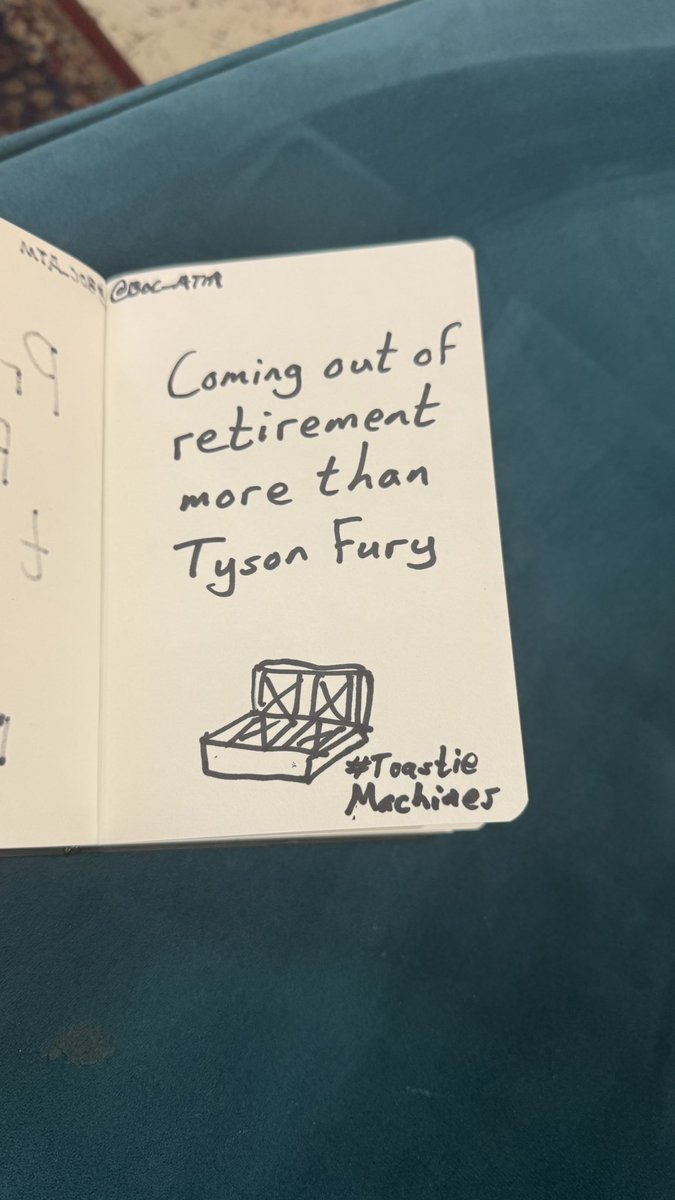 @BOC_ATM
Coming out of
retirement
more than
Tyson Fury
#Toastie
Machines